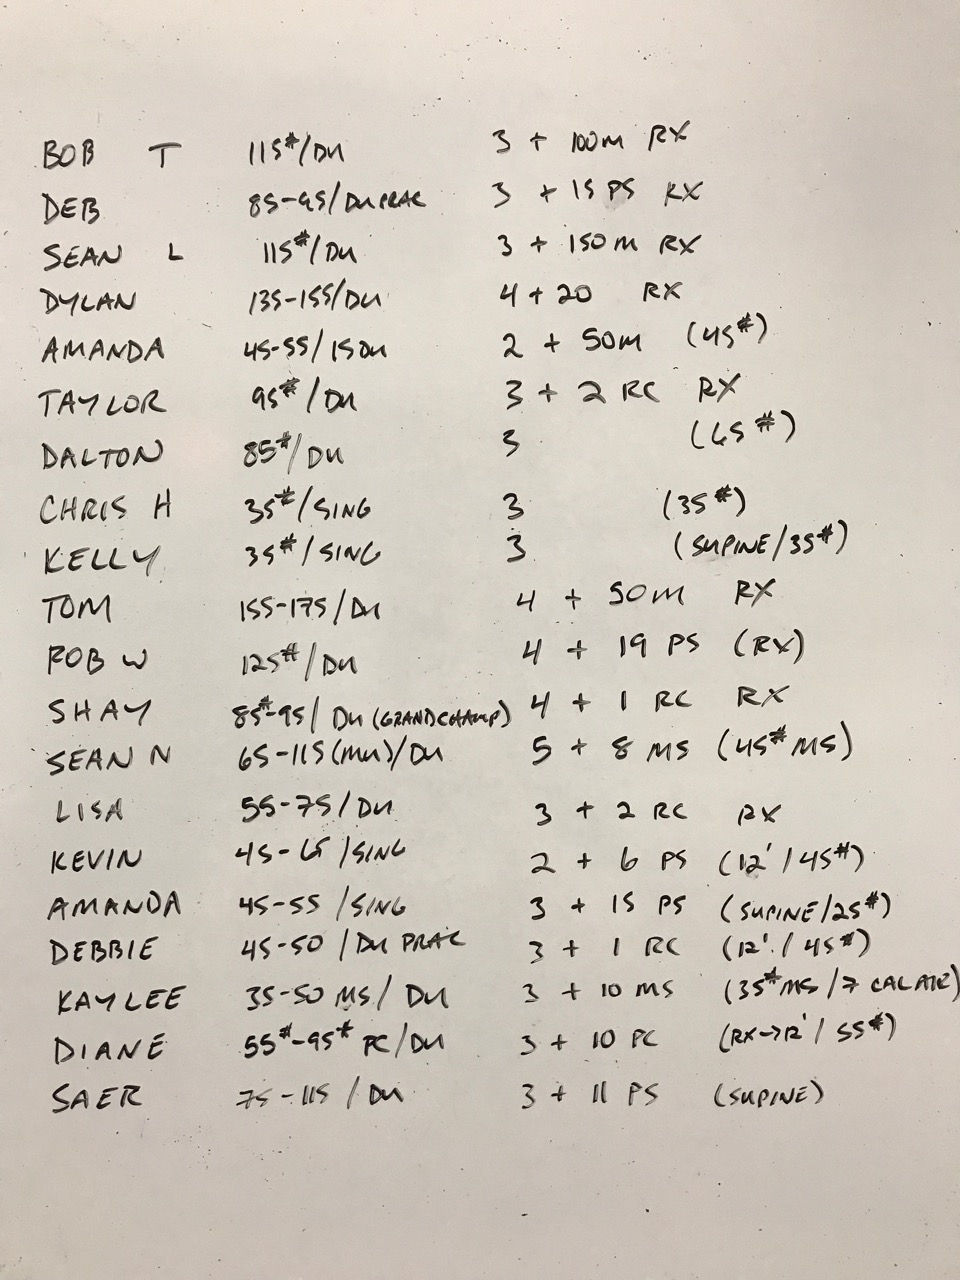 BOB T 115#/DU 3 + 100M RX
DEB 85-95/DU PRAC 3 + 15 PS RX
SEAN L 115#/DU 3 + 150M RX
DYLAN 135-155/DU 4 + 20 RX
AMANDA 45-55/15DU 2 + 50M (45#)
TAYLOR 95#/DU 3 + 2 RC RX
DALTON 85#/DU 3 (65#)
CHRIS H 35#/SING 3 (35#)
KELLY 35#/SING 3 (SUPINE/35#)
TOM 155-175/DU 4 + 50M RX
ROB W 125#/DU 4 + 19 PS (RX)
SHAY 85#-95/ DU (GRANDCHAMP) 4 + 1 RC RX
SEAN N 65-115(MU)/DU 5 + 8 MS (45# MS)
LISA 55-75/DU 3 + 2 RC RX
KEVIN 45-65/SING 2 + 6 PS (12'/45#)
AMANDA 45-55/SING 3 + 15 PS (SUPINE/25#)
DEBBIE 45-50/DU PRAC 3 + 1 RC (12'/45#)
KAYLEE 35-50 MS/ DU 3 + 10 MS (35# MS/7 CAL ATE)
DIANE 55#-95# PC/DU 3 + 10 PC (RX→12'/55#)
SAER 75-115/DU 3 + 11 PS (SUPINE)